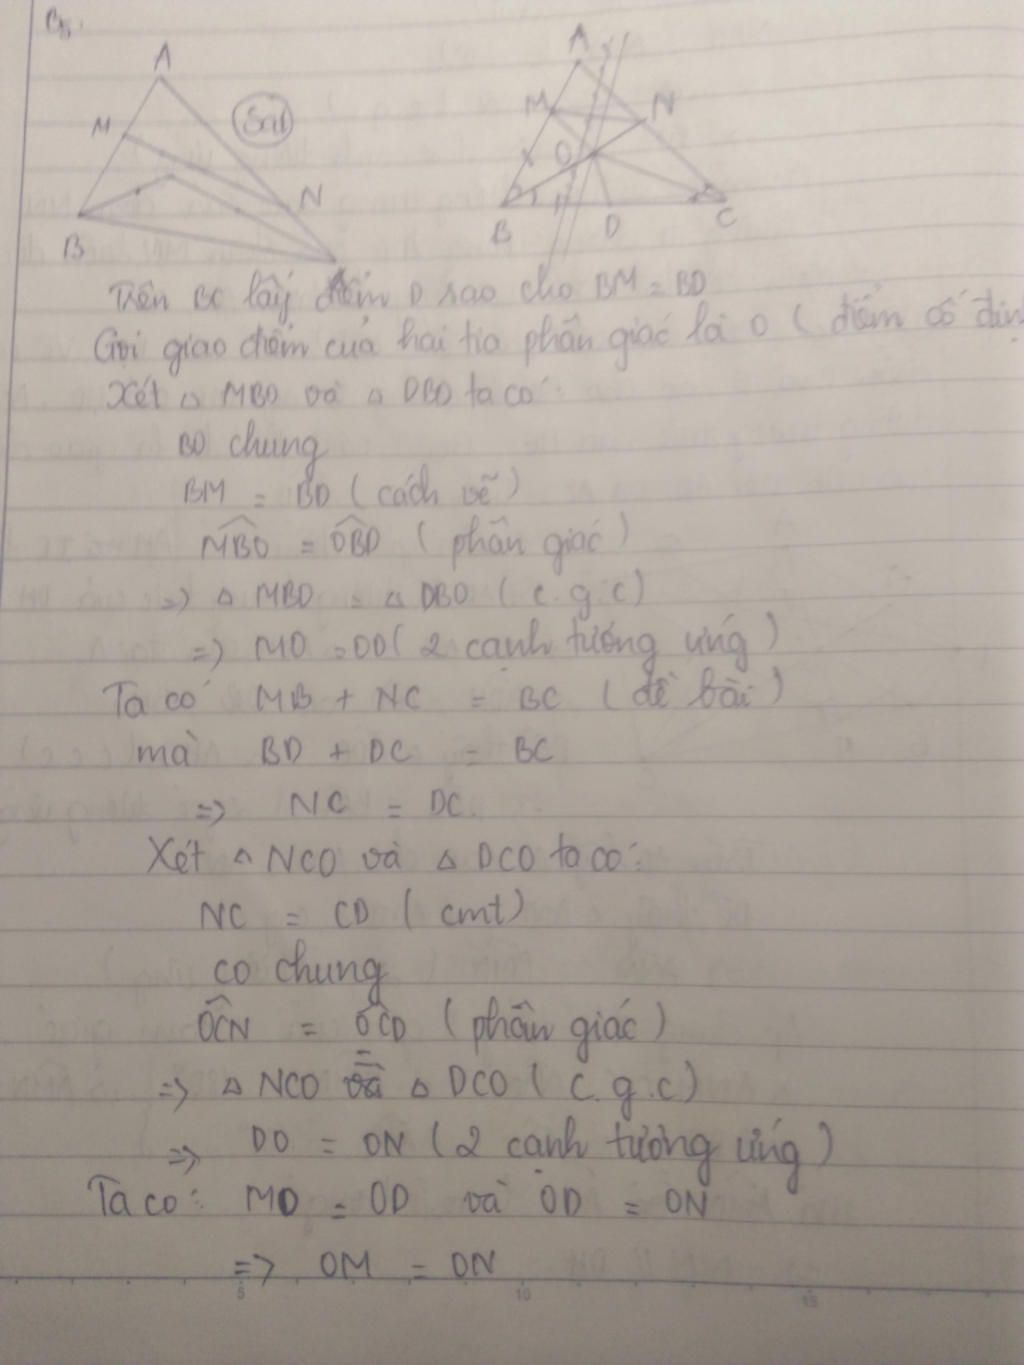 B5.
A
M
Sai
N
B
A
M
N
O
B
D
C
Trên BC lấy điểm D sao cho BM = BD
Gọi giao điểm của hai tia phân giác là O ( điểm cố địn
Xét △ MBO và △ DBO ta có:
BO chung
BM = BD ( cách vẽ )
MBO = OBD ( phân giác )
=> △ MBO = △ DBO ( c.g.c )
=> MO = OD ( 2 cạnh tương ứng )
Ta có MB + NC = BC ( đề bài )
mà BD + DC = BC
=> NC = DC.
Xét △ NCO và △ DCO ta có:
NC = CD ( cmt )
CO chung
OCN = OCD ( phân giác )
=> △ NCO = △ DCO ( c.g.c )
=> DO = ON ( 2 cạnh tương ứng )
Ta có: MO = OD và OD = ON
=> OM = ON
5 10 15